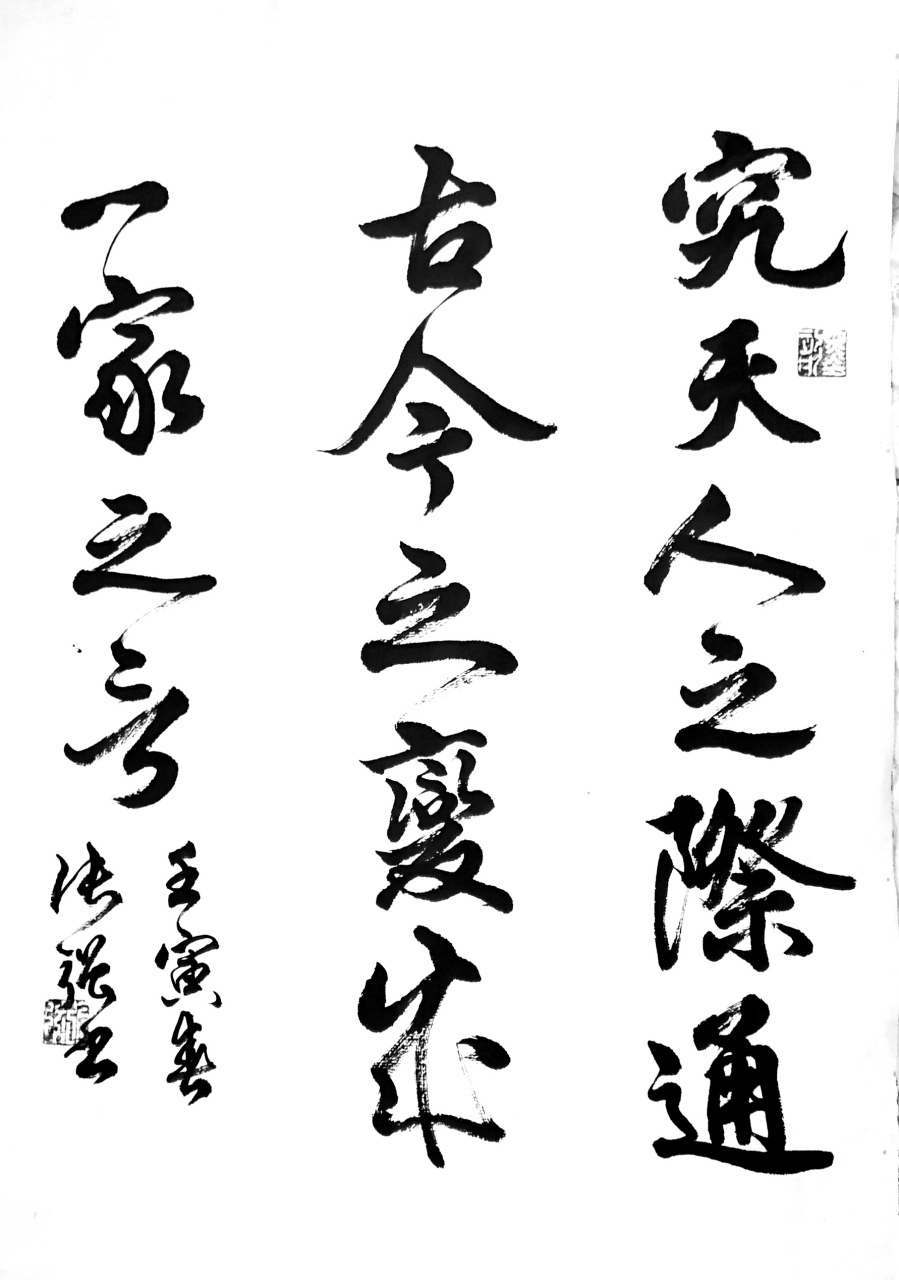 究天人之際通
古今之變成
一家之言
壬寅春
張強書